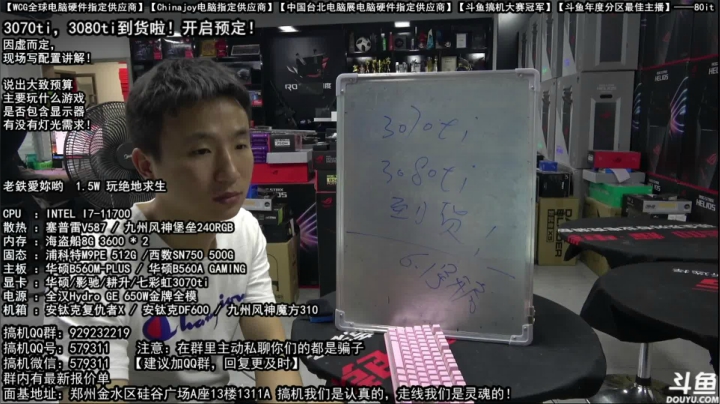 【WCG全球电脑硬件指定供应商】【Chinajoy电脑指定供应商】【中国台北电脑展电脑硬件指定供应商】【斗鱼搞机大赛冠军】【斗鱼年度分区最佳主播】——80it
3070ti，3080ti到货啦！开启预定！
因虚而定，
现场写配置讲解！
说出大致预算
主要玩什么游戏
是否包含显示器
有没有灯光需求！
3070ti
3080ti
到货！
老鉄愛妳哟 1.5W 玩绝地求生
CPU ：INTEL I7-11700
散热 ：塞普雷V587 / 九州风神堡垒240RGB
内存 ：海盗船8G 3600 * 2
固态 ：浦科特M9PE 512G / 西数SN750 500G
主板 ：华硕B560M-PLUS / 华硕B560A GAMING
显卡 ：华硕/影驰/耕升/七彩虹3070ti
电源 ：全汉Hydro GE 650W金牌全模
机箱 ：安钛克复仇者X / 安钛克DF600 / 九州风神魔方310
搞机QQ群：929232219
搞机QQ号：579311 注意：在群里主动私聊你们的都是骗子
搞机微信：579311 【建议加QQ群，回复更及时】
群内有最新报价单
面基地址：郑州金水区硅谷广场A座13楼1311A 搞机我们是认真的，走线我们是灵魂的！
HELIOS
HELIOS
Champion
斗鱼
DOUYU.COM